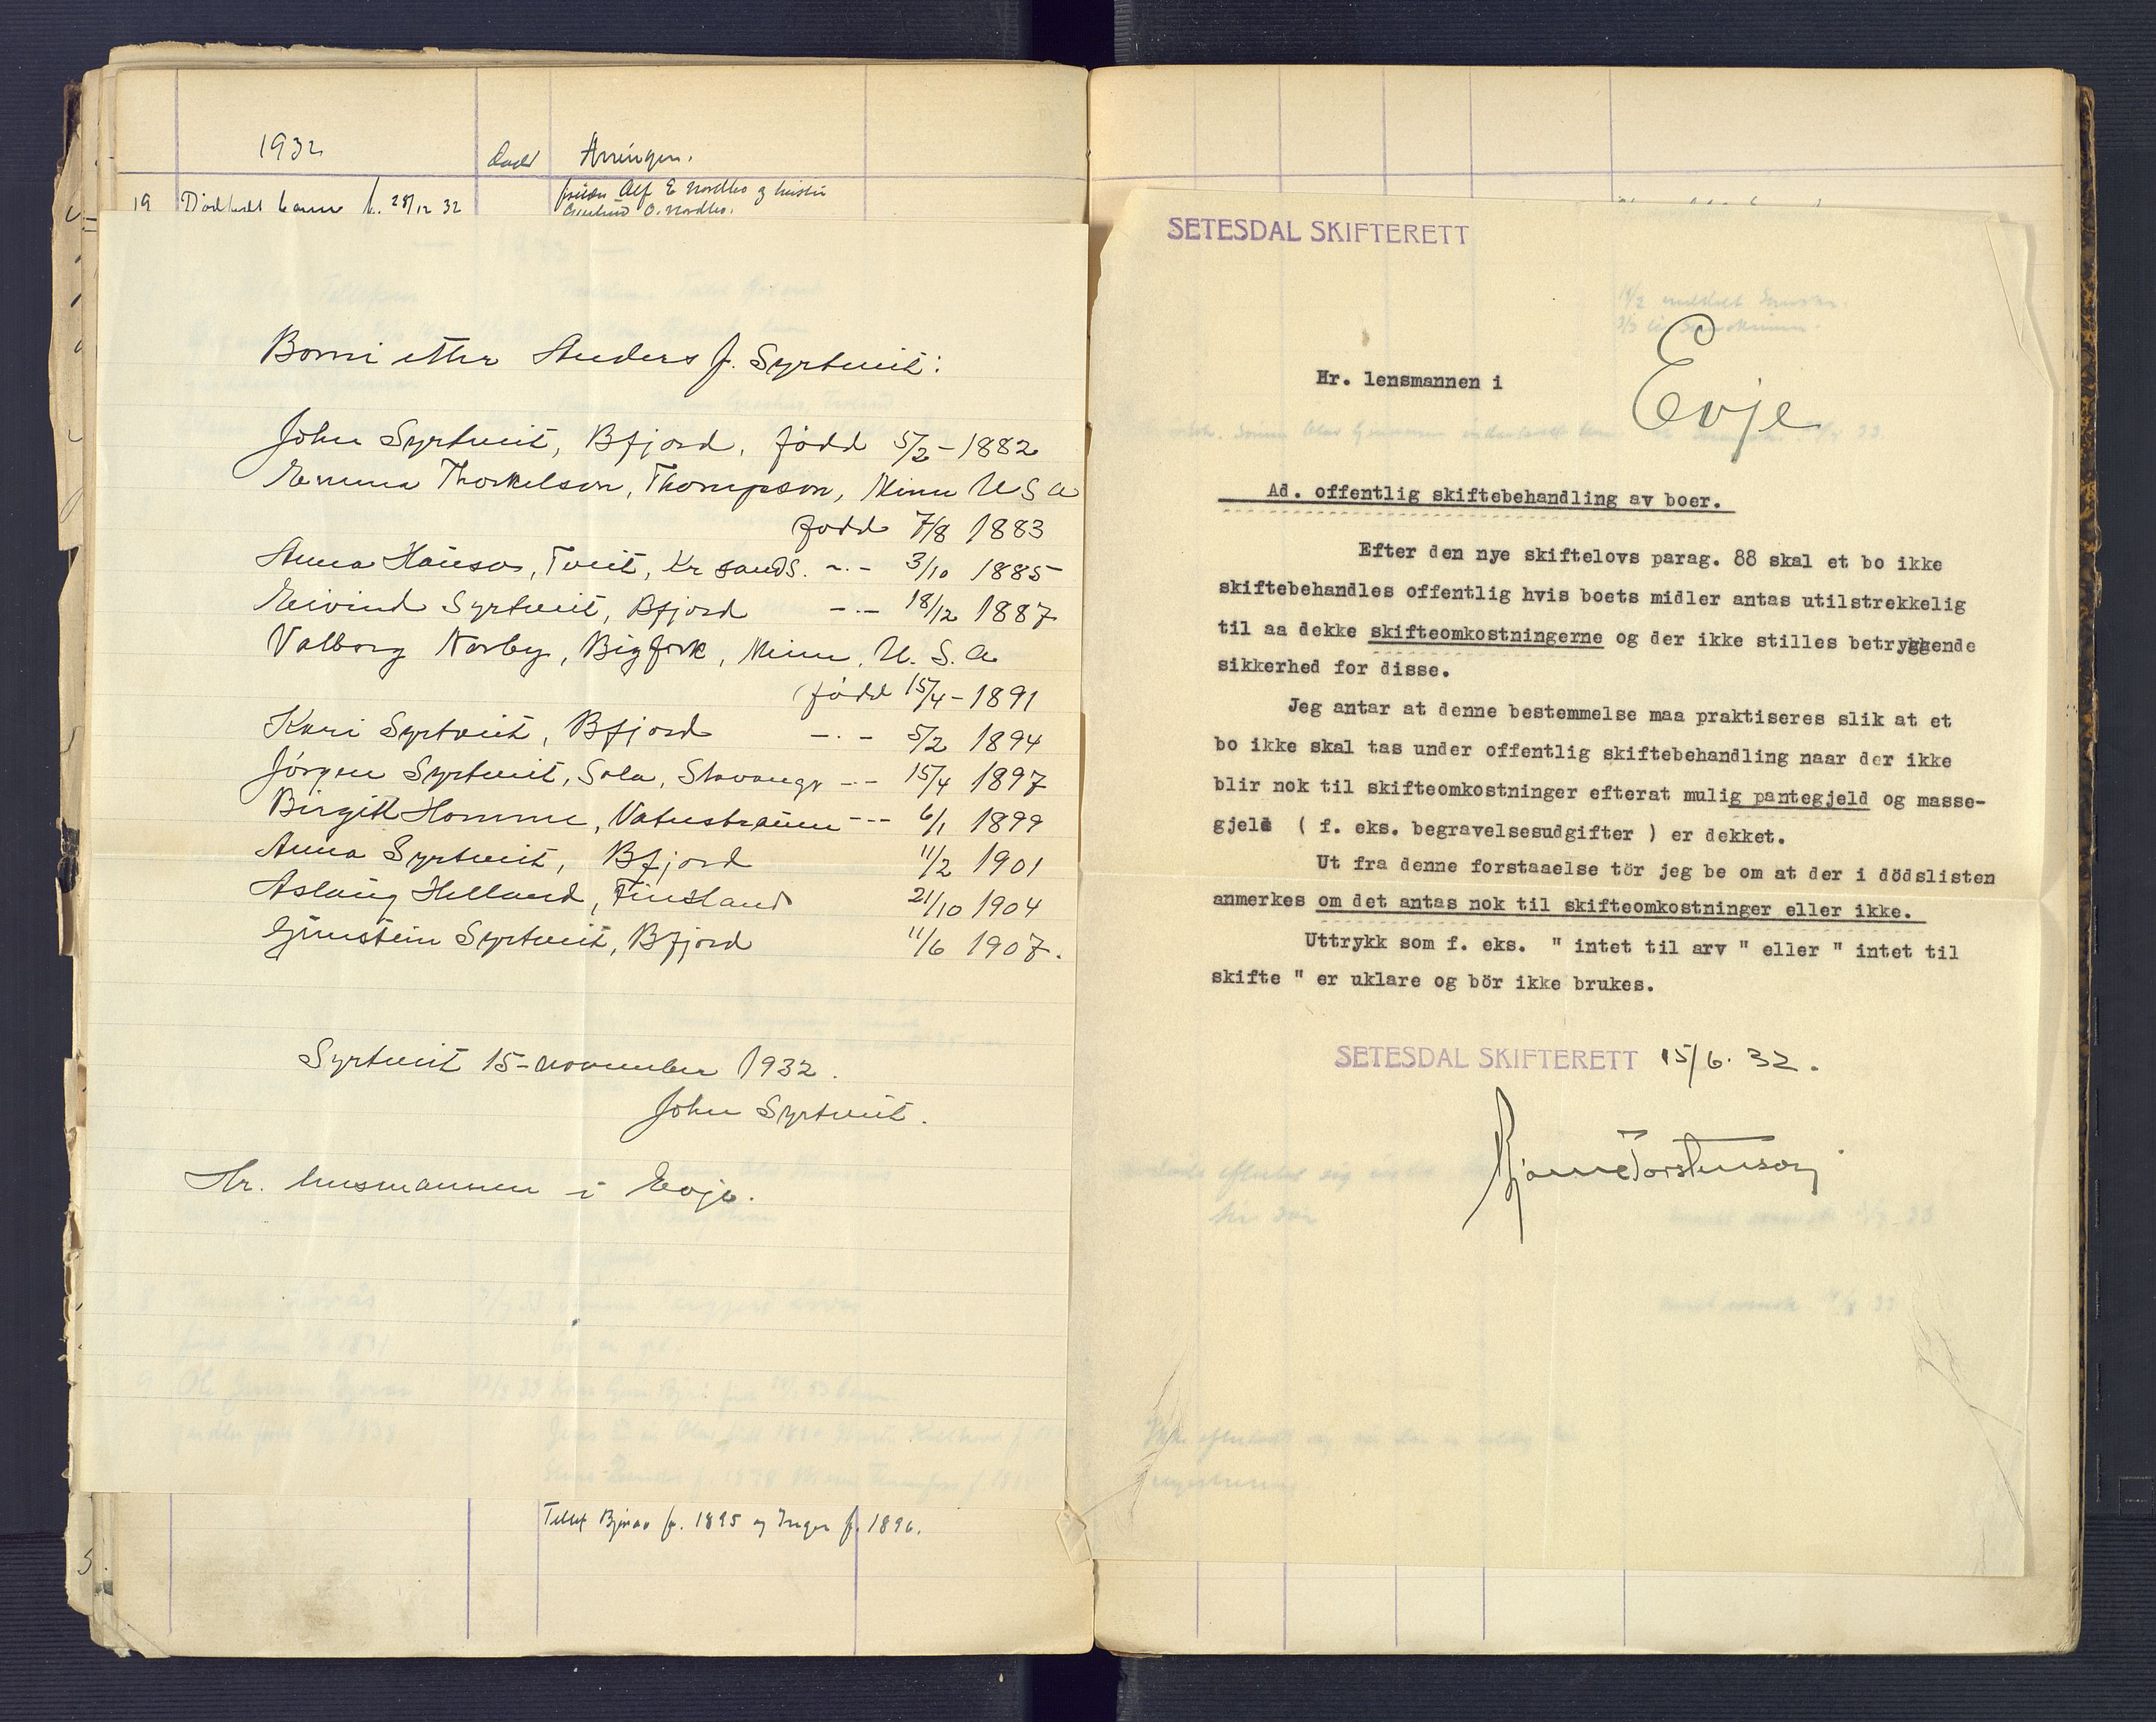 1932
Arvingen.
19 Dødfødt barn f. 28/12 32
Alf E Nordbo og hustru
O. Nordbo.
Borni etter Anders J. Syrtveit:
John Syrtveit, Bfjord, född 5/2-1882
Emma Thorkelson, Thompson, Minn U S A
född 7/8 1883
Anna Hauso, Tveit, Kr sands. -.- 3/10 1885
Eivind Syrtveit, Bfjord -.- 18/12 1887
Valborg Norby, Bigfork, Minn, U. S. A
född 15/4-1891
Kari Syrtveit, Bfjord -.- 5/2 1894
Jörgen Syrtveit, Sola, Stavangr -.- 15/4 1897
Birgitt Homme, Vatnstraum --- 6/1 1899
Anna Syrtveit, Bfjord 11/2 1901
Aslaug Helland, Finsland 21/10 1904
Gunstein Syrtveit, Bfjord 11/6 1907.
Syrtveit 15-november 1932.
John Syrtveit.
Hr. lensmannen i Evje.
f. 1895 og Inger f. 1896.
SETESDAL SKIFTERETT
Hr. lensmannen i Evje
Ad. offentlig skiftebehandling av boer.
Efter den nye skiftelovs parag. 88 skal et bo ikke
skiftebehandles offentlig hvis boets midler antas utilstrekkelig
til aa dekke skifteomkostningerne og der ikke stilles betryggende
sikkerhed for disse.
Jeg antar at denne bestemmelse maa praktiseres slik at et
bo ikke skal tas under offentlig skiftebehandling naar der ikke
blir nok til skifteomkostninger efterat mulig pantegjeld og masse-
gjeld ( f. eks. begravelsesudgifter ) er dekket.
Ut fra denne forstaaelse tör jeg be om at der i dödslisten
anmerkes om det antas nok til skifteomkostninger eller ikke.
Uttrykk som f. eks. " intet til arv " eller " intet til
skifte " er uklare og bör ikke brukes.
SETESDAL SKIFTERETT 15/6. 32.
Bjarne Torstenson